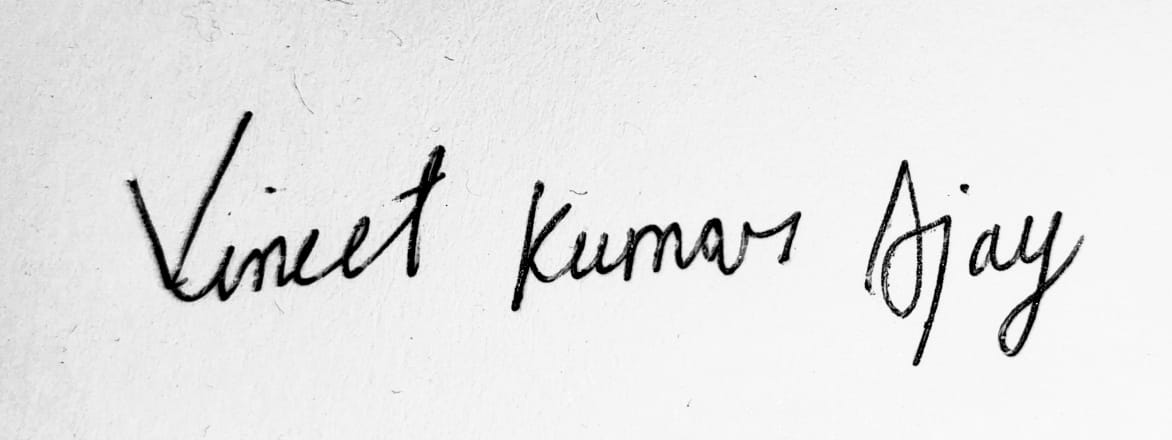 Vineet Kumar Ajay